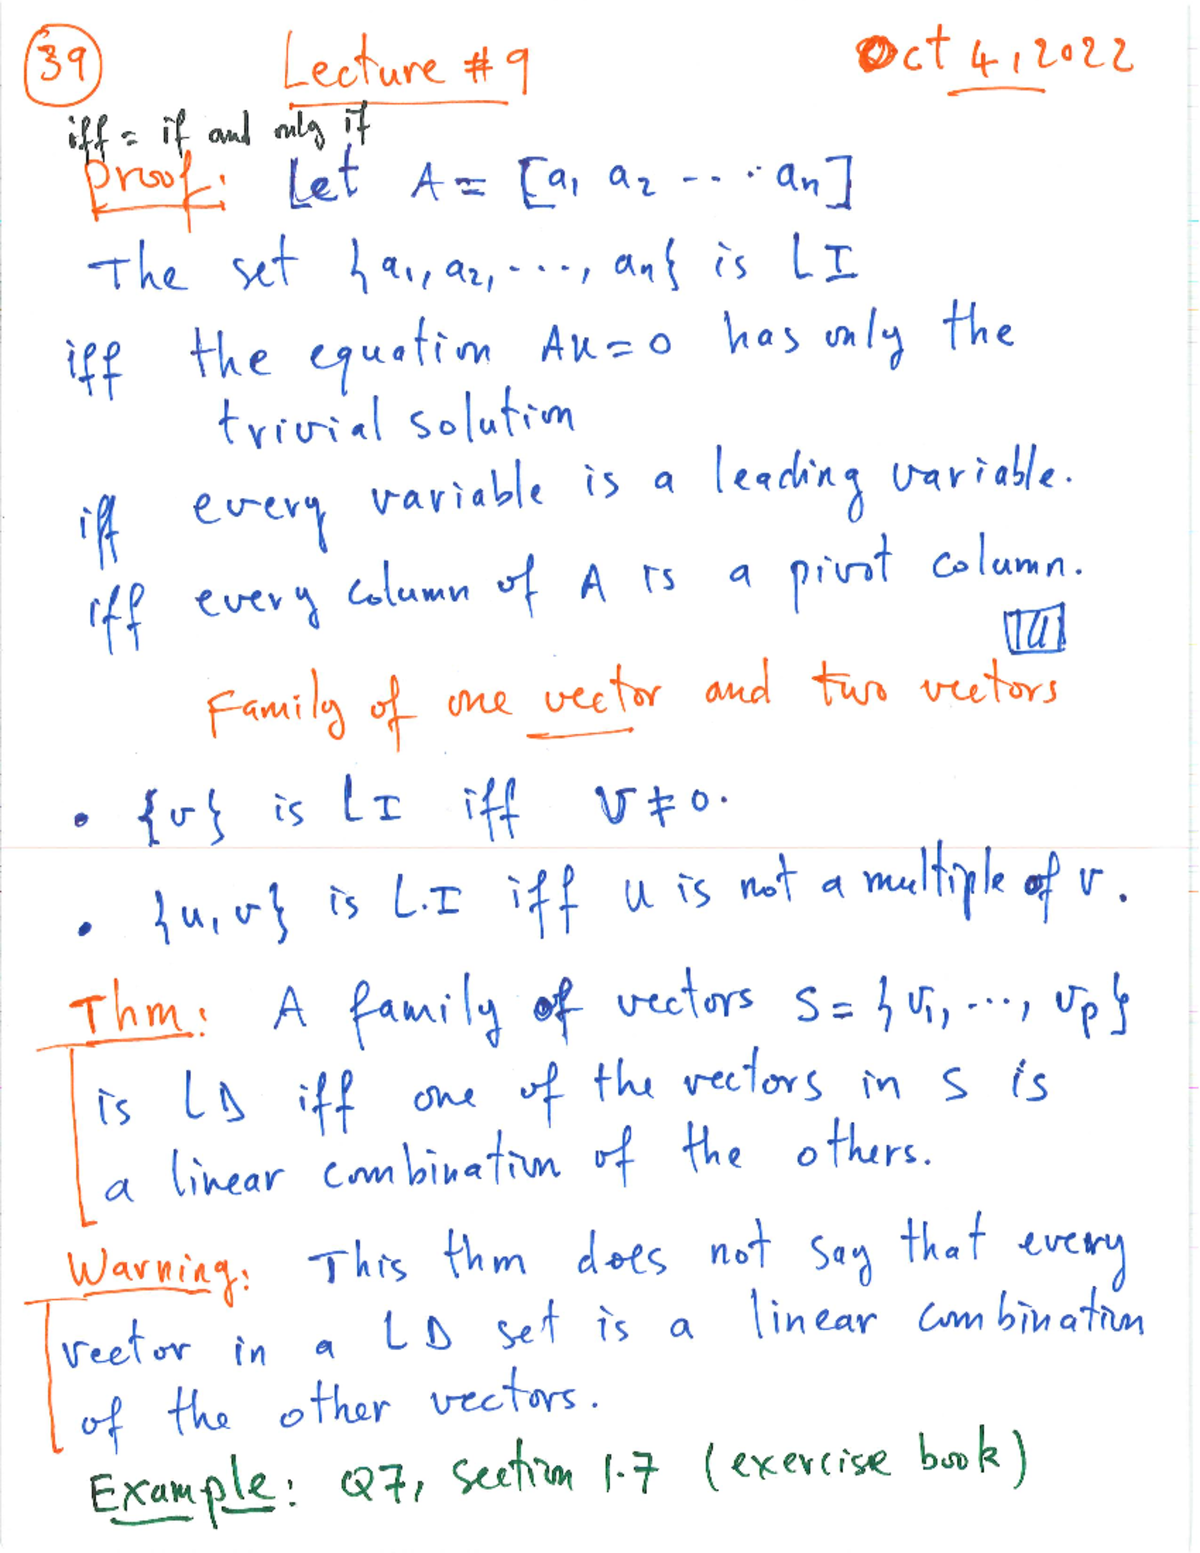 39
Lecture #9
Oct 4, 2022
iff = if and only if
Proof: Let A = [a₁ a₂ ---- an]
The set {a₁, a₂, ---, an} is LI
iff the equation Ax=0 has only the
trivial solution
iff every variable is a leading variable.
iff every column of A is a pivot column.
Family of one vector and two vectors
• {v} is LI iff v ≠ 0.
• {u, v} is L.I iff u is not a multiple of v.
Thm: A family of vectors S = {v₁, ---, vp}
is LD iff one of the vectors in S is
a linear combination of the others.
Warning: This thm does not say that every
vector in a LD set is a linear combination
of the other vectors.
Example: Q7, section 1.7 (exercise book)